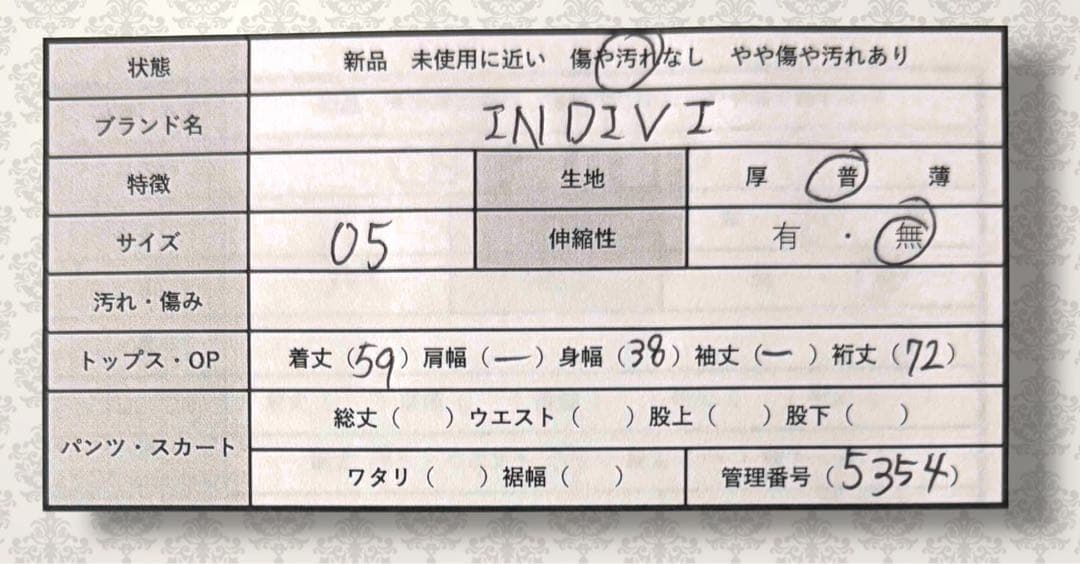 状態 新品 未使用に近い 傷や汚れなし やや傷や汚れあり
ブランド名 INDIVI
特徴 生地 厚 普 薄
サイズ 05 伸縮性 有 ・ 無
汚れ・傷み
トップス・OP 着丈（59）肩幅（ー）身幅（38）袖丈（ー）裄丈（72）
パンツ・スカート 総丈（ ）ウエスト（ ）股上（ ）股下（ ）
ワタリ（ ）裾幅（ ） 管理番号（5354）